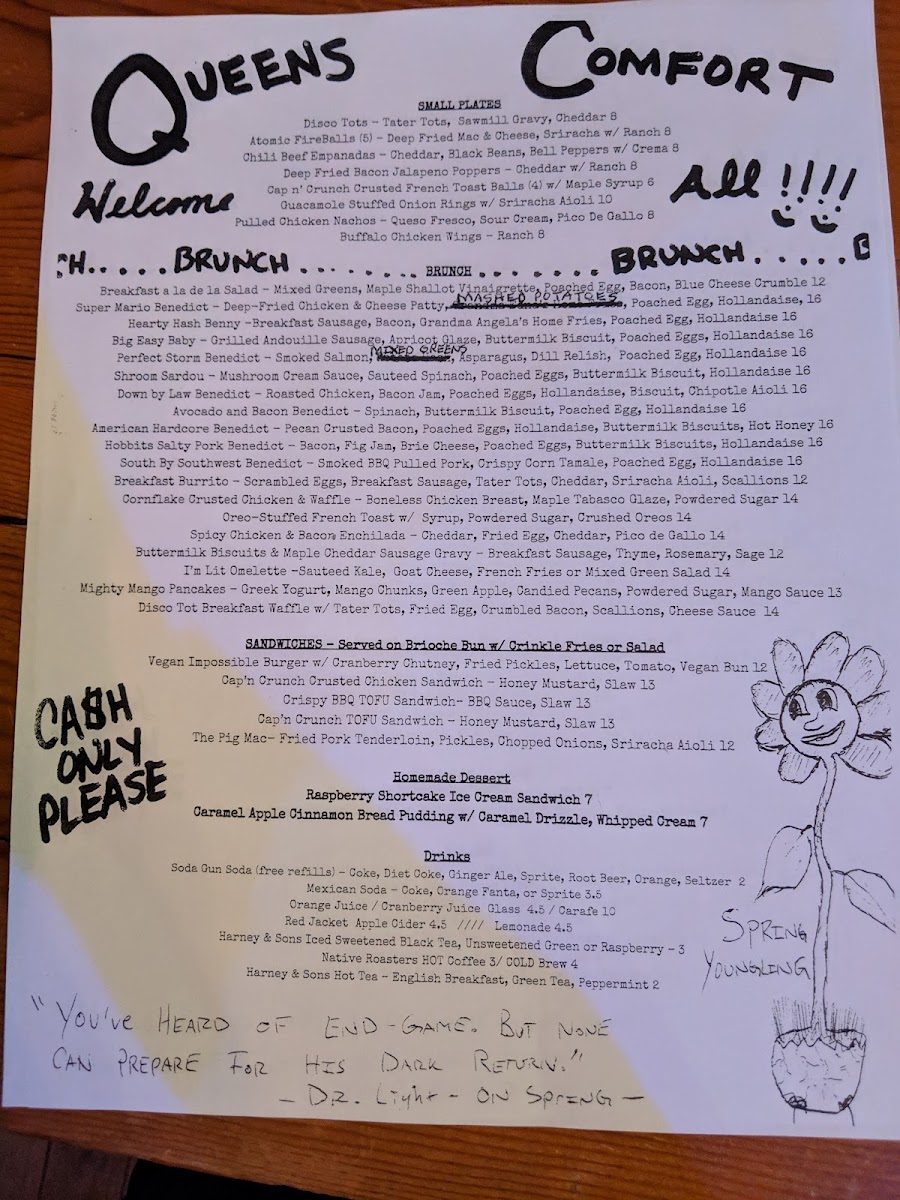 QUEENS COMFORT
SMALL PLATES
Disco Tots - Tater Tots, Sawmill Gravy, Cheddar 8
Atomic FireBalls (5) - Deep Fried Mac & Cheese, Sriracha w/ Ranch 8
Chili Beef Empanadas - Cheddar, Black Beans, Bell Peppers w/ Crema 8
Deep Fried Bacon Jalapeno Poppers - Cheddar w/ Ranch 8
Cap n' Crunch Crusted French Toast Balls (4) w/ Maple Syrup 6
Guacamole Stuffed Onion Rings w/ Sriracha Aioli 10
Pulled Chicken Nachos - Queso Fresco, Sour Cream, Pico De Gallo 8
Buffalo Chicken Wings - Ranch 8
Welcome All !!!!
H.....BRUNCH........BRUNCH.......BRUNCH.....B
Breakfast a la de la Salad - Mixed Greens, Maple Shallot Vinaigrette, Poached Egg, Bacon, Blue Cheese Crumble 12
Super Mario Benedict - Deep-Fried Chicken & Cheese Patty, MASHED POTATOES, Poached Egg, Hollandaise, 16
Hearty Hash Benny -Breakfast Sausage, Bacon, Grandma Angela's Home Fries, Poached Egg, Hollandaise 16
Big Easy Baby - Grilled Andouille Sausage, Apricot Glaze, Buttermilk Biscuit, Poached Eggs, Hollandaise 16
Perfect Storm Benedict - Smoked Salmon, MIXED GREENS, Asparagus, Dill Relish, Poached Egg, Hollandaise 16
Shroom Sardou - Mushroom Cream Sauce, Sauteed Spinach, Poached Eggs, Buttermilk Biscuit, Hollandaise 16
Down by Law Benedict - Roasted Chicken, Bacon Jam, Poached Eggs, Hollandaise, Biscuit, Chipotle Aioli 16
Avocado and Bacon Benedict - Spinach, Buttermilk Biscuit, Poached Egg, Hollandaise 16
American Hardcore Benedict - Pecan Crusted Bacon, Poached Eggs, Hollandaise, Buttermilk Biscuits, Hot Honey 16
Hobbits Salty Pork Benedict - Bacon, Fig Jam, Brie Cheese, Poached Eggs, Buttermilk Biscuits, Hollandaise 16
South By Southwest Benedict - Smoked BBQ Pulled Pork, Crispy Corn Tamale, Poached Egg, Hollandaise 16
Breakfast Burrito - Scrambled Eggs, Breakfast Sausage, Tater Tots, Cheddar, Sriracha Aioli, Scallions 12
Cornflake Crusted Chicken & Waffle - Boneless Chicken Breast, Maple Tabasco Glaze, Powdered Sugar 14
Oreo-Stuffed French Toast w/ Syrup, Powdered Sugar, Crushed Oreos 14
Spicy Chicken & Bacon Enchilada - Cheddar, Fried Egg, Cheddar, Pico de Gallo 14
Buttermilk Biscuits & Maple Cheddar Sausage Gravy - Breakfast Sausage, Thyme, Rosemary, Sage 12
I'm Lit Omelette -Sauteed Kale, Goat Cheese, French Fries or Mixed Green Salad 14
Mighty Mango Pancakes - Greek Yogurt, Mango Chunks, Green Apple, Candied Pecans, Powdered Sugar, Mango Sauce 13
Disco Tot Breakfast Waffle w/ Tater Tots, Fried Egg, Crumbled Bacon, Scallions, Cheese Sauce 14
SANDWICHES - Served on Brioche Bun w/ Crinkle Fries or Salad
Vegan Impossible Burger w/ Cranberry Chutney, Fried Pickles, Lettuce, Tomato, Vegan Bun 12
Cap'n Crunch Crusted Chicken Sandwich - Honey Mustard, Slaw 13
Crispy BBQ TOFU Sandwich- BBQ Sauce, Slaw 13
Cap'n Crunch TOFU Sandwich - Honey Mustard, Slaw 13
The Pig Mac- Fried Pork Tenderloin, Pickles, Chopped Onions, Sriracha Aioli 12
CASH
ONLY
PLEASE
Homemade Dessert
Raspberry Shortcake Ice Cream Sandwich 7
Caramel Apple Cinnamon Bread Pudding w/ Caramel Drizzle, Whipped Cream 7
Drinks
Soda Gun Soda (free refills) - Coke, Diet Coke, Ginger Ale, Sprite, Root Beer, Orange, Seltzer 2
Mexican Soda - Coke, Orange Fanta, or Sprite 3.5
Orange Juice / Cranberry Juice Glass 4.5 / Carafe 10
Red Jacket Apple Cider 4.5 //// Lemonade 4.5
Harney & Sons Iced Sweetened Black Tea, Unsweetened Green or Raspberry - 3
Native Roasters HOT Coffee 3/ COLD Brew 4
Harney & Sons Hot Tea - English Breakfast, Green Tea, Peppermint 2
SPRING
YOUNGLING
"YOU'VE HEARD OF END-GAME. BUT NONE
CAN PREPARE FOR HIS DARK RETURN."
- DR. Light - ON SPRING -